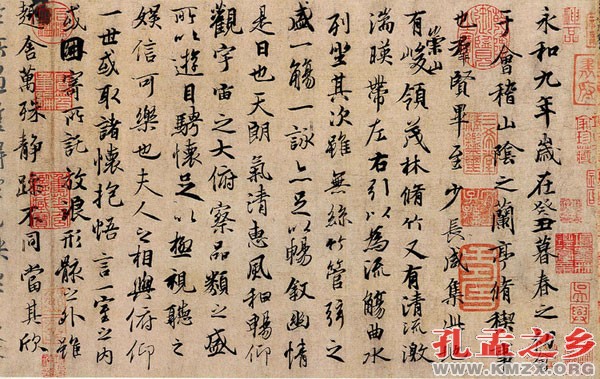 永和九年歲在癸丑暮春之初會
于會稽山陰之蘭亭脩稧事
也羣賢畢至少長咸集此地
有崇山峻領茂林脩竹又有清流激
湍暎帶左右引以為流觴曲水
列坐其次雖無絲竹管弦之
盛一觴一詠亦足以暢敘幽情
是日也天朗氣清惠風和暢仰
觀宇宙之大俯察品類之盛
所以遊目騁懷足以極視聽之
娛信可樂也夫人之相與俯仰
一世或取諸懷抱悟言一室之內
或因寄所託放浪形骸之外雖
趣舍萬殊靜躁不同當其欣
孔孟之乡
www.KMZX.ORG